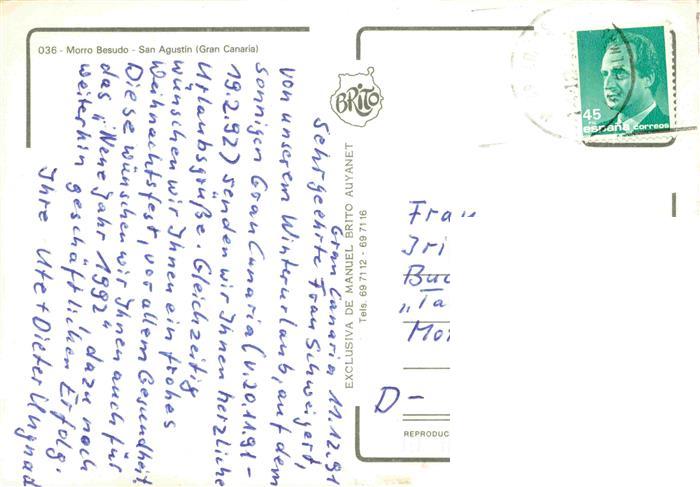 036 - Morro Besudo - San Agustín (Gran Canaria)
Gran Canaria, 11.12.91
Sehr geehrte Frau Schweigert,
von unserem Winterurlaub, auf dem
sonnigen Gran Canaria (v. 20.11.91 -
19.2.92) senden wir Ihnen herzliche
Urlaubsgrüße. Gleichzeitig
wünschen wir Ihnen ein frohes
Weihnachtsfest, vor allem Gesundheit.
Diese wünschen wir Ihnen auch für
das "Neue Jahr 1992", dazu noch
weiterhin geschäftlichen Erfolg.
Ihre Ute + Dieter Ungnad
BRITO
EXCLUSIVA DE MANUEL BRITO AUYANET
Tels. 69 71 12 - 69 71 16
45
PTA
españa correos
Frau
Iri
Buc
"Ta
Mo
D-
REPRODUC